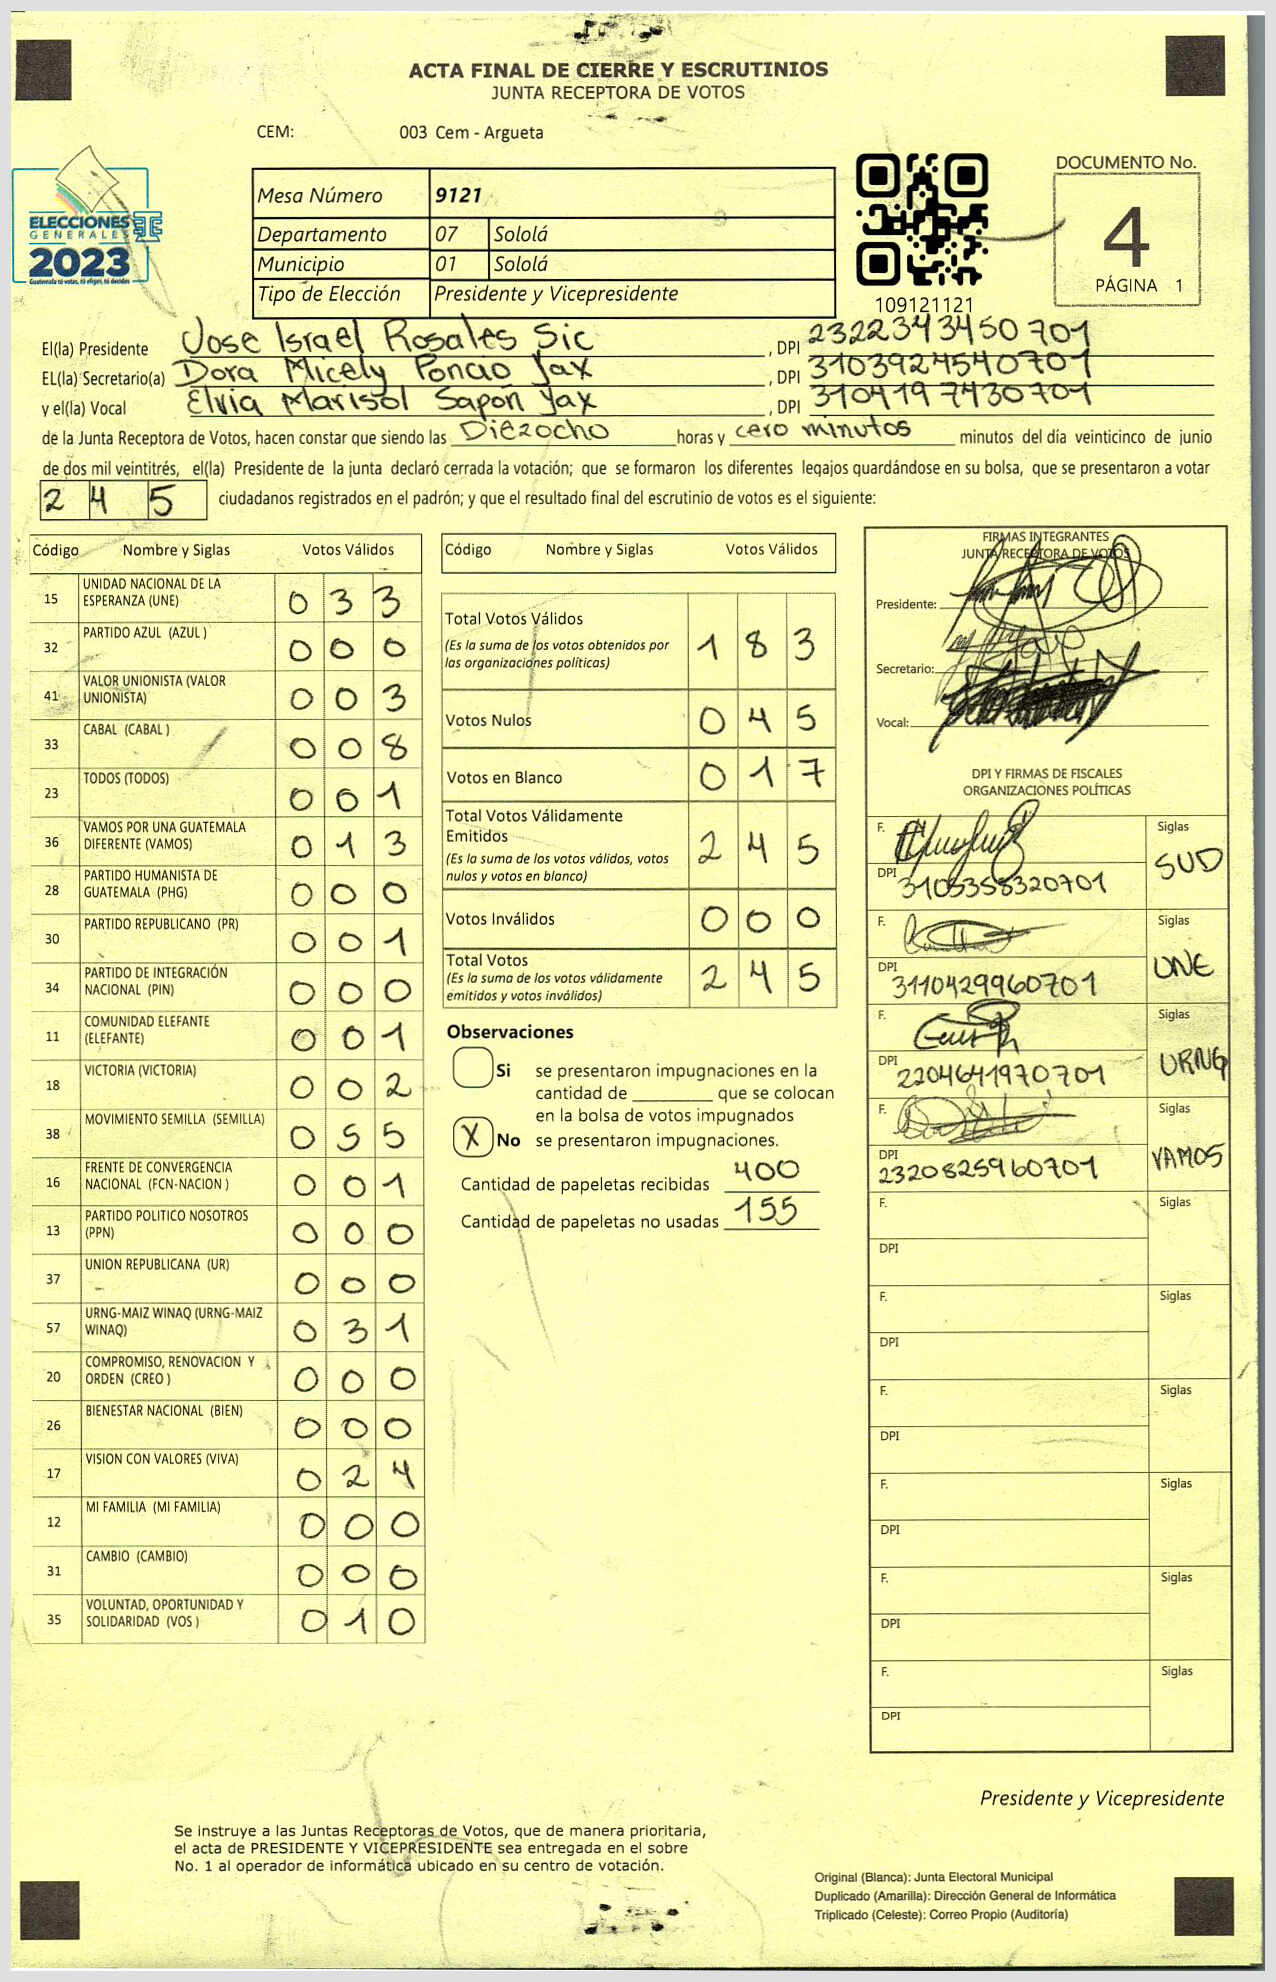 ACTA FINAL DE CIERRE Y ESCRUTINIOS
JUNTA RECEPTORA DE VOTOS
CEM: 003 Cem - Argueta
ELECCIONES
GENERALES
2023
Guatemala tú votas, tú eliges, tú decides
Mesa Número 9121
Departamento 07 Sololá
Municipio 01 Sololá
Tipo de Elección Presidente y Vicepresidente
109121121
DOCUMENTO No.
4
PÁGINA 1
El(la) Presidente Jose Israel Rosales Sic , DPI 2322343450701
EL(la) Secretario(a) Dora Micely Poncio Yax , DPI 3103924540701
y el(la) Vocal Elvia Marisol Sapon Yax , DPI 3104197430701
de la Junta Receptora de Votos, hacen constar que siendo las Diezocho horas y cero minutos minutos del día veinticinco de junio
de dos mil veintitrés, el(la) Presidente de la junta declaró cerrada la votación; que se formaron los diferentes legajos guardándose en su bolsa, que se presentaron a votar
2 4 5 ciudadanos registrados en el padrón; y que el resultado final del escrutinio de votos es el siguiente:
Código Nombre y Siglas Votos Válidos
15 UNIDAD NACIONAL DE LA
ESPERANZA (UNE) 0 3 3
32 PARTIDO AZUL (AZUL ) 0 0 0
41 VALOR UNIONISTA (VALOR
UNIONISTA) 0 0 3
33 CABAL (CABAL ) 0 0 8
23 TODOS (TODOS) 0 0 1
36 VAMOS POR UNA GUATEMALA
DIFERENTE (VAMOS) 0 1 3
28 PARTIDO HUMANISTA DE
GUATEMALA (PHG) 0 0 0
30 PARTIDO REPUBLICANO (PR) 0 0 1
34 PARTIDO DE INTEGRACIÓN
NACIONAL (PIN) 0 0 0
11 COMUNIDAD ELEFANTE
(ELEFANTE) 0 0 1
18 VICTORIA (VICTORIA) 0 0 2
38 MOVIMIENTO SEMILLA (SEMILLA) 0 5 5
16 FRENTE DE CONVERGENCIA
NACIONAL (FCN-NACION ) 0 0 1
13 PARTIDO POLITICO NOSOTROS
(PPN) 0 0 0
37 UNION REPUBLICANA (UR) 0 0 0
57 URNG-MAIZ WINAQ (URNG-MAIZ
WINAQ) 0 3 1
20 COMPROMISO, RENOVACION Y
ORDEN (CREO ) 0 0 0
26 BIENESTAR NACIONAL (BIEN) 0 0 0
17 VISION CON VALORES (VIVA) 0 2 4
12 MI FAMILIA (MI FAMILIA) 0 0 0
31 CAMBIO (CAMBIO) 0 0 0
35 VOLUNTAD, OPORTUNIDAD Y
SOLIDARIDAD (VOS ) 0 1 0
Código Nombre y Siglas Votos Válidos
Total Votos Válidos
(Es la suma de los votos obtenidos por
las organizaciones políticas) 1 8 3
Votos Nulos 0 4 5
Votos en Blanco 0 1 7
Total Votos Válidamente
Emitidos
(Es la suma de los votos válidos, votos
nulos y votos en blanco) 2 4 5
Votos Inválidos 0 0 0
Total Votos
(Es la suma de los votos válidamente
emitidos y votos inválidos) 2 4 5
Observaciones
Si se presentaron impugnaciones en la
cantidad de ________ que se colocan
en la bolsa de votos impugnados
X No se presentaron impugnaciones.
Cantidad de papeletas recibidas 400
Cantidad de papeletas no usadas 155
FIRMAS INTEGRANTES
JUNTA RECEPTORA DE VOTOS
Presidente:
Secretario:
Vocal:
DPI Y FIRMAS DE FISCALES
ORGANIZACIONES POLÍTICAS
F. Siglas
SUD
DPI 3105358320701
F. Siglas
UNE
DPI 3110429960701
F. Siglas
URNG
DPI 2204641970701
F. Siglas
VAMOS
DPI 2320825960701
F. Siglas
DPI
F. Siglas
DPI
F. Siglas
DPI
F. Siglas
DPI
F. Siglas
DPI
F. Siglas
DPI
Presidente y Vicepresidente
Se instruye a las Juntas Receptoras de Votos, que de manera prioritaria,
el acta de PRESIDENTE Y VICEPRESIDENTE sea entregada en el sobre
No. 1 al operador de informática ubicado en su centro de votación.
Original (Blanca): Junta Electoral Municipal
Duplicado (Amarilla): Dirección General de Informática
Triplicado (Celeste): Correo Propio (Auditoría)